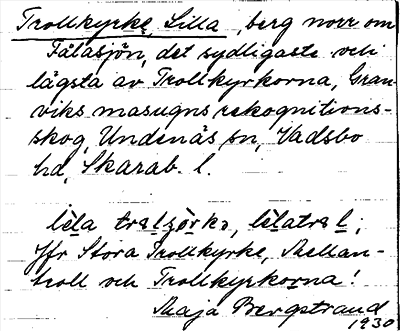 Trollkyrke, Lilla, berg norr om
Fälasjön, det sydligaste och
lägsta av Trollkyrkorna, Gran-
viks masugns rekognitions-
skog, Undenäs sn, Vadsbo
hd, Skarab. l.
Jfr Stora Trollkyrke, Mellan-
troll och Trollkyrkorna!
Maja Bergstrand
1930